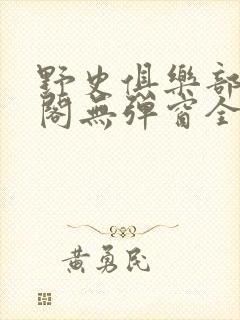 野史俱樂部
閣無彈窗全
黃勇民